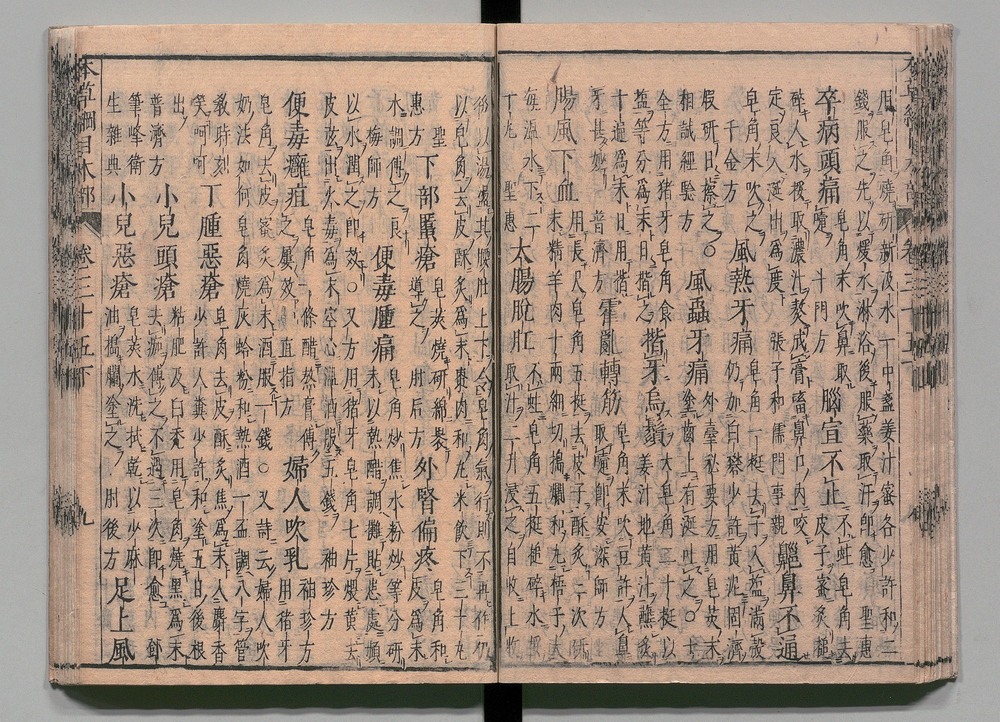 用皂角燒研新汲水一中盞姜汁蜜各少許和二
錢服之先以煖水淋浴後服藥取汗即愈 聖惠
卒病頭痛 皂角末吹鼻取嚏 斗門方 腦宣不止 不蛀皂角去皮子蜜炙槌
碎入水挼取濃汁熬成膏嗜鼻口內咬
定良久涎出爲度 張子和儒門事親 鼽鼻不通
皂角末吹之 千金方 風熱牙痛 皂角一挺去子入鹽滿殼
仍加白礬少許黃泥固濟
煆研日擦之 風蟲牙痛 塗齒上有涎吐之
外臺秘要方用皂莢末
相誠經驗方 全方用猪牙皂角食
鹽等分爲末日揩之 揩牙烏鬚 大皂角二十挺以姜汁地黃汁蘸炙
十遍爲末日用揩牙甚妙 普濟方 霍亂轉筋 皂角末吹豆許入鼻
取嚏即安 梁師方
腸風下血 用長尺皂角五挺去皮子酥炙三次
末精羊肉十兩細切搗爛和丸梧子大
每溫水下二十丸 聖惠 大腸脫肛 不蛀皂角五挺槌碎水
取汁二升浸之自收上收
後以湯盪其腰肚上下令皂角氣行則不再作仍
以皂角去皮酥炙爲末棗肉和丸米飲下三十丸
聖惠方 下部䘌瘡 皂莢燒研綿裹導之 肘后方 外腎偏疼 皂角和皮爲末
水調傅之良 梅師方 便毒腫痛 皂角炒焦水粉炒等分研末以熱醋調攤貼患處頻
以水潤之即效 又方用猪牙皂角七片煨黃去
皮弦出火毒爲末空心溫酒服五錢 袖珍方
便毒癰疽 皂角一條醋熬膏傅之屢效 直指方 婦人吹乳 袖珍方用猪牙
皂角去皮蜜炙爲末酒服一錢 又詩云婦人吹
奶法如何皂角燒灰蛤粉和熱酒一盃調八字管
教時刻笑呵呵 丁腫惡瘡 皂角去皮酥炙焦爲末入麝香
少許人糞少許和塗五日後根出
普濟方 小兒頭瘡 粘肥及白禿用皂角燒黑爲末
去痂傅之不過三次即愈 鄧
筆峰衛生雜典 小兒惡瘡 皂莢水洗拭乾以少麻油搗爛塗之 肘後方 足上風
本草綱目木部 卷三十五下 九